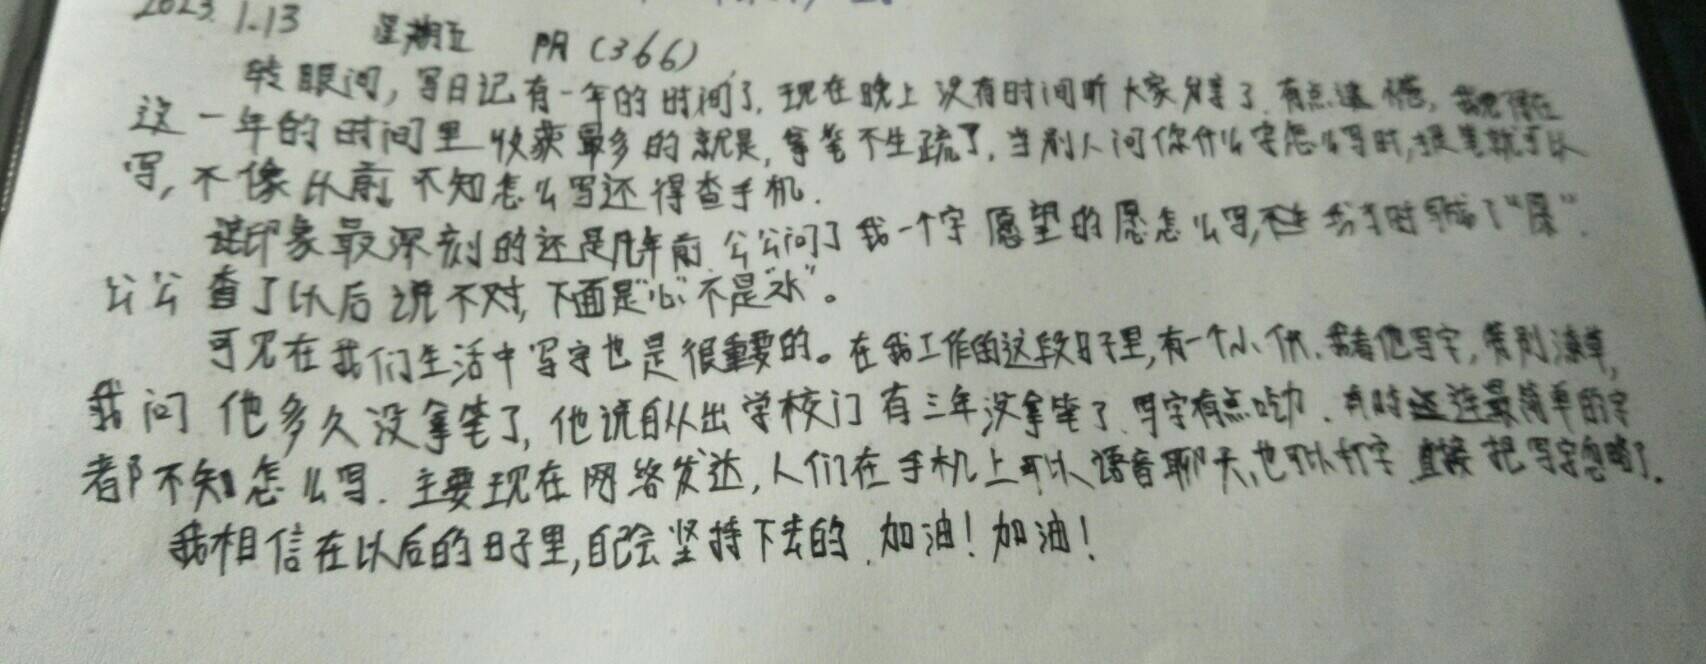 2023. 1.13 星期五 阴(366)
转眼间,写日记有一年的时间了.现在晚上没有时间听大家分享了.有点遗憾,我觉得在
这一年的时间里收获最多的就是,拿笔不生疏了.当别人问你什么字怎么写时,提笔就可以
写,不像以前不知怎么写还得查手机.
印象最深刻的还是几年前.公公问了我一个字愿望的愿怎么写,
公公查了以后说不对,下面是"心"不是"水"。
可见在我们生活中写字也是很重要的。在我工作的这段日子里,有一个小伙.我看他写字,特别潦草,
我问他多久没拿笔了,他说自从出学校门有三年没拿笔了.写字有点吃力.有时还连最简单的字
都不知怎么写.主要现在网络发达,人们在手机上可以语音聊天,也可以打字.直接把写字忽略了.
我相信在以后的日子里,自己会坚持下去的.加油!加油!